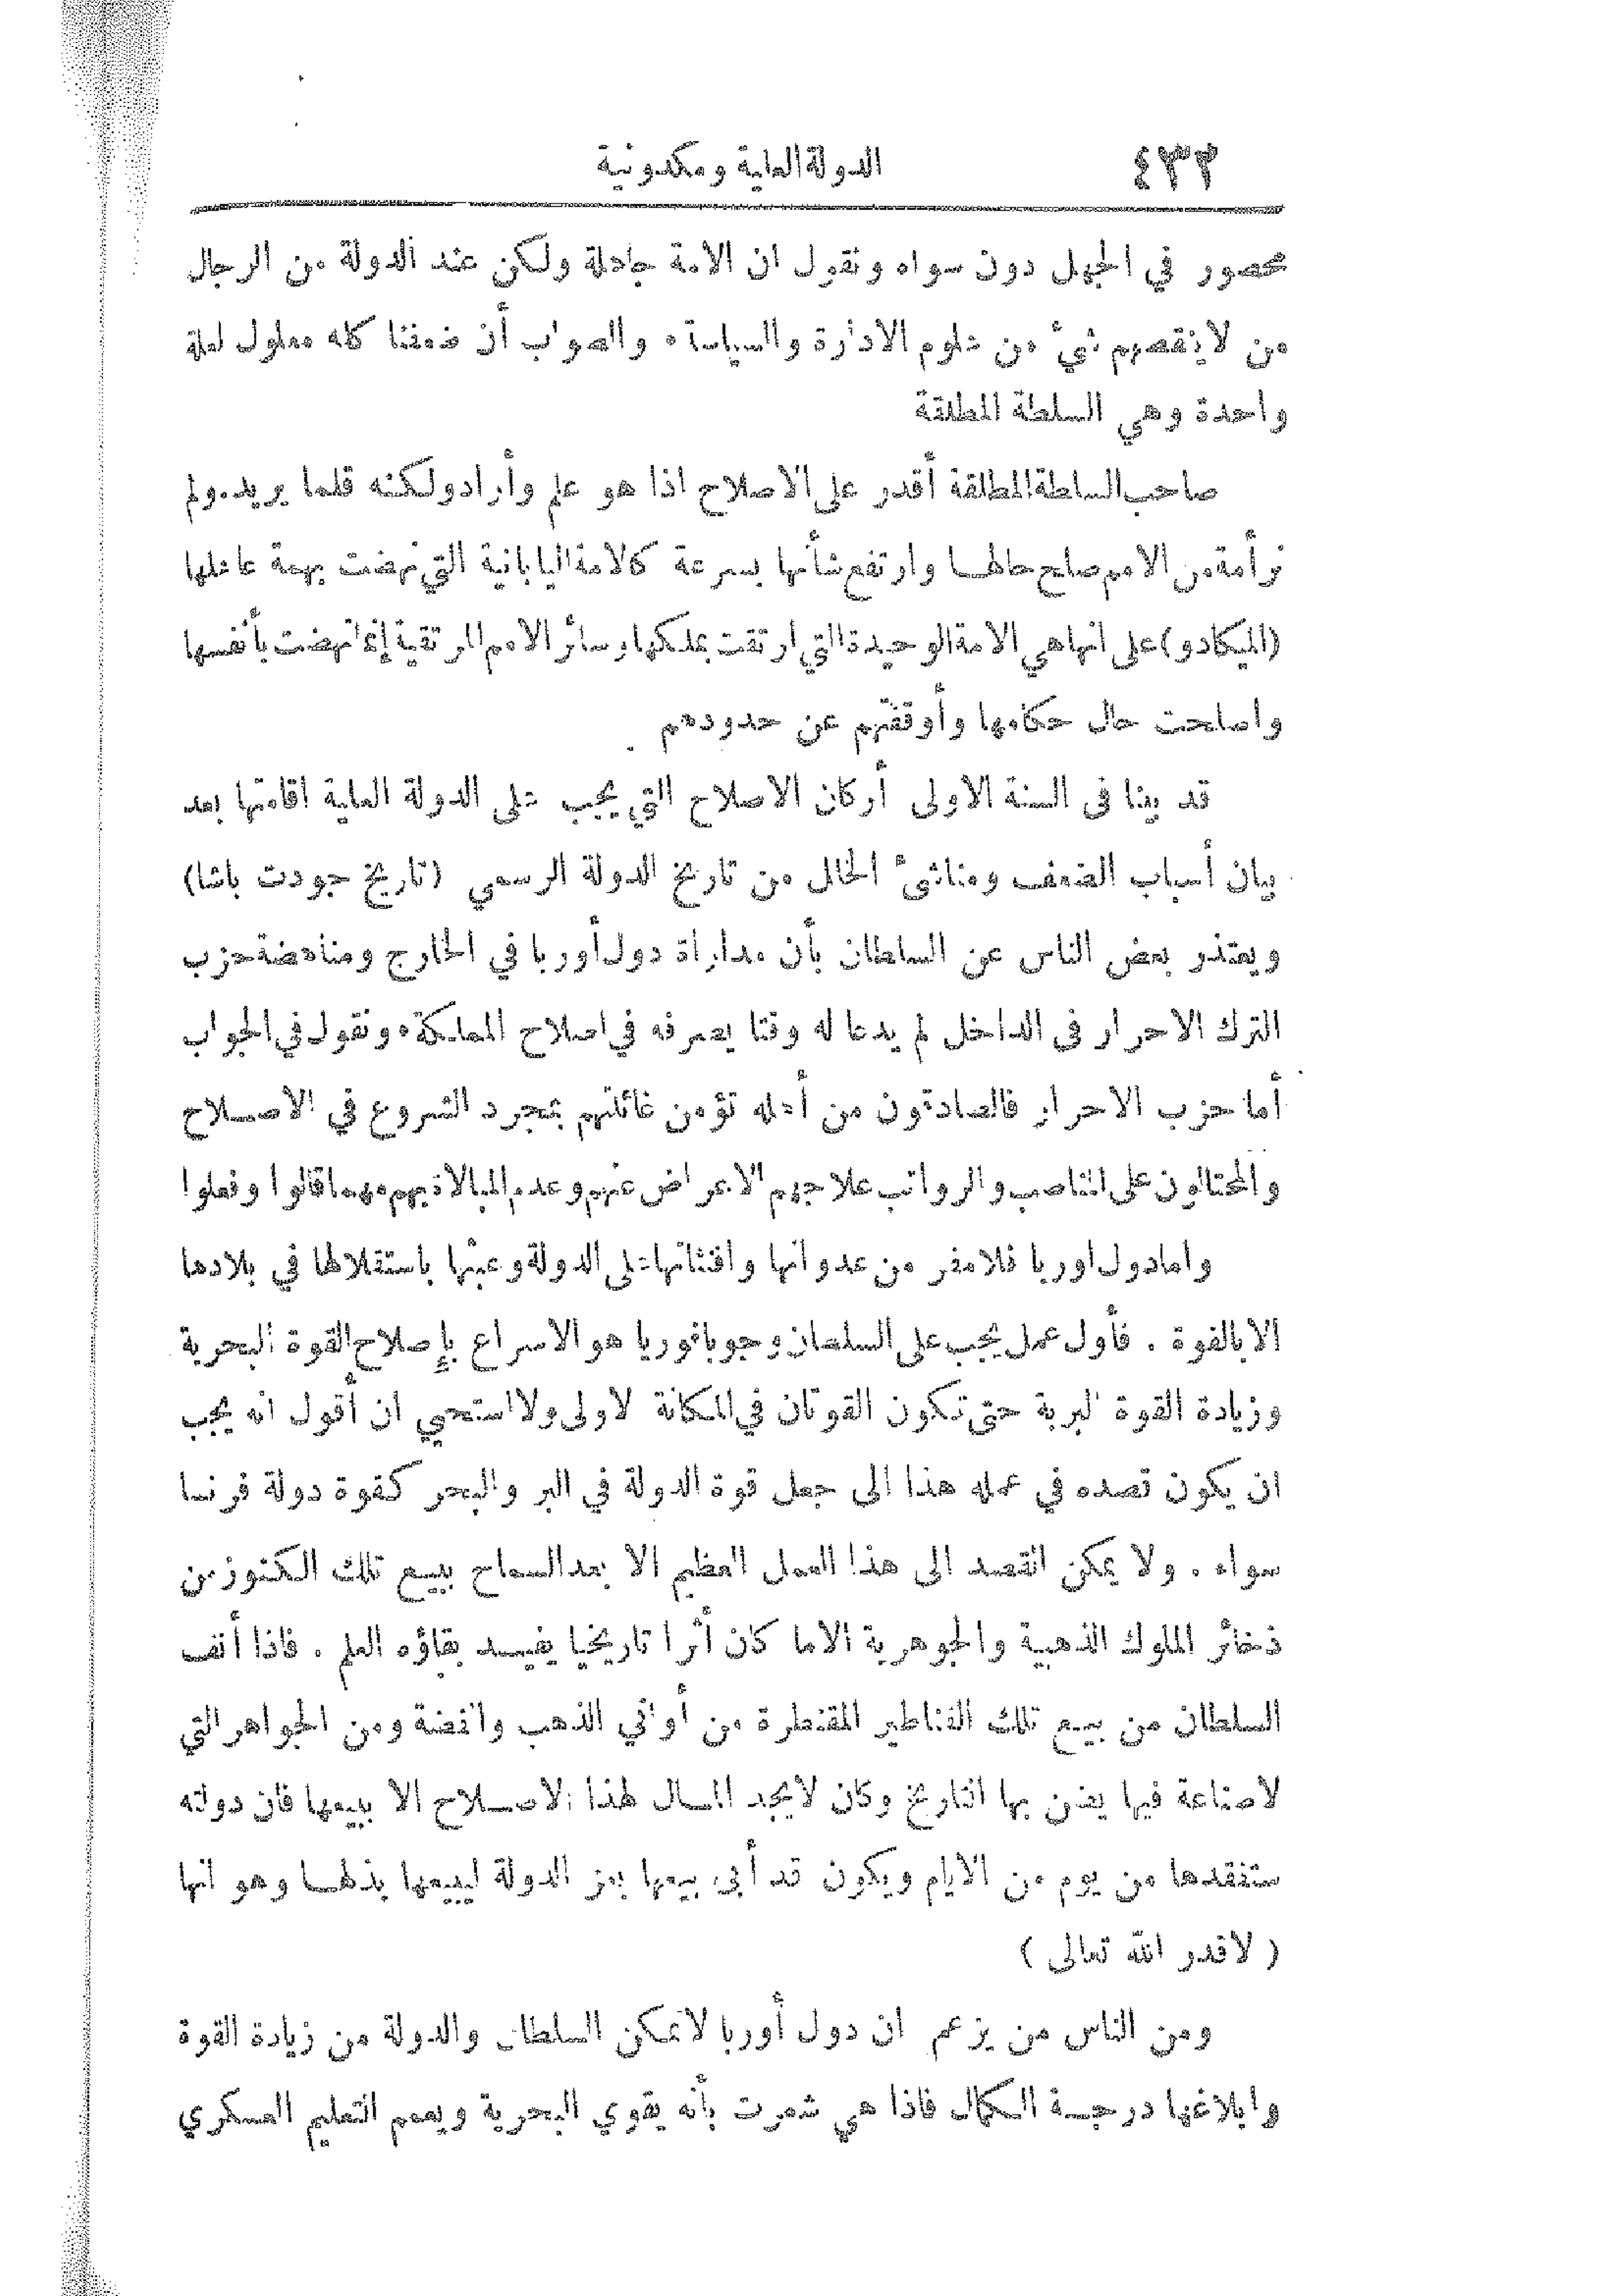 ٤٣٢ الدولة العلية ومكدونية
محصور في الجهل دون سواه ونقول ان الامة جاهلة ولكن عند الدولة من الرجال
من لا ينقصهم شيء من علوم الادارة والسياسة ٠ والصواب أن ضعفنا كله معلول لعلة
واحدة وهي السلطة المطلقة
صاحب السلطة المطلقة أقدر على الاصلاح اذا هو علم وأراد ولكنه قلما يريد ٠ ولم
نر أمة من الامم صلح حالهـا وارتفع شأنها بسرعة كالامة اليابانية التي نهضت بهمة عاهلها
(الميكادو) على انها هي الامة الوحيدة التي ارتقت بملكها وسائر الامم المرتقية إنما نهضت بأنفسها
واصلحت حال حكامها وأوقفتهم عن حدودهم
قد بينا فى السنة الاولى أركان الاصلاح التي يجب على الدولة العلية اقامتها بعد
بيان أسباب الضعف ومناشئ الخلل من تاريخ الدولة الرسمي (تاريخ جودت باشا)
ويعتذر بعض الناس عن السلطان بأن مداراة دول أوربا في الخارج ومناهضة حزب
الترك الاحرار فى الداخل لم يدعا له وقتا يصرفه في اصلاح المملكة ٠ ونقول في الجواب
أما حزب الاحرار فالصادقون من أهله تؤمن غائلتهم بمجرد الشروع في الاصـلاح
والمحتالون على المناصب والرواتب علاجهم الاعراض عنهم وعدم المبالاة بهم مهما قالوا وفعلوا
واما دول اوربا فلا مفر من عدوانها وافتئاتها على الدولة وعبثها باستقلالها في بلادها
الا بالقوة . فأول عمل يجب على السلطان وجوبا فوريا هو الاسراع بإصلاح القوة البحرية
وزيادة القوة البرية حتى تكون القوتان في المكانة الاولى ولا استحيي ان أقول انه يجب
ان يكون قصده في عمله هذا الى جعل قوة الدولة في البر والبحر كقوة دولة فرنسا
سواه . ولا يمكن القصد الى هذا العمل العظيم الا بعد السماح ببيـع تلك الكنوز من
ذخائر الملوك الذهبية والجوهرية الا ما كان أثرا تاريخيا يفيـد بقاؤه العلم . فاذا أنف
السلطان من بيـع تلك القناطير المقنطرة من أواني الذهب والفضة ومن الجواهر التي
لا صناعة فيها يضن بها التاريخ وكان لا يجد المـال لهذا الاصـلاح الا ببيعها فان دولته
ستفقدها من يوم من الايام ويكون قد أبى بيعها بعز الدولة ليبيعها بذلهـا وهو انها
( لا قدر الله تعالى )
ومن الناس من يزعم ان دول أوربا لا تمكن السلطان والدولة من زيادة القوة
وابلاغها درجـة الكمال فاذا هي شعرت بأنه يقوي البحرية ويعمم التعليم العسكري